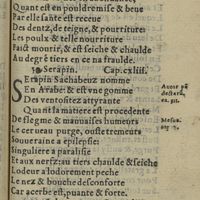 Quant est en pouldre mise & beue
Par elle santé est receue
Des dentz, de teigne, & pourritures
Les poulx & telle nourriture
Faict mourir, & est seiche & chaulde
Au degré tiers en ce na fraulde.
Serapin. Cap. cxliii.
SErapin Sachabeuz nomme
En Arabe: & est vne gomme
Des ventositez attyrante
Quant sa matiere est procedente
De flegme & mauuaises humeurs
Le cerueau purge, ouste tremeurs
Souueraine a epilepsie:
Singuliere a paralisie
Et aux nerfz: au tiers chaulde & seiche
Lodeur a lodorement peche
Le nez & bouche desconforte
Car acerbe est, puante & forte.
Autor